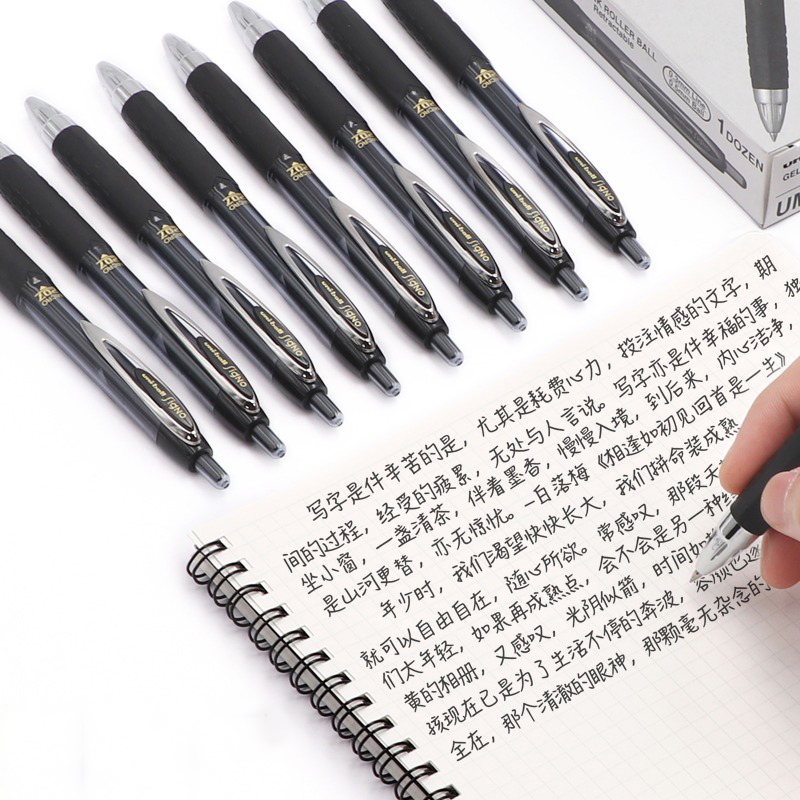 ROLLER BALL
Retractable
1 DOZEN
GEL
UM
uni-ball SigNO
uni-ball SigNO
uni-ball SigNO
uni-ball SigNO
uni-ball SigNO
uni-ball SigNO
uni-ball SigNO
uni-ball SigNO
写字是件辛苦的是，尤其是耗费心力，投注情感的文字，期
间的过程，经受的疲累，无处与人言说。写字亦是件幸福的事，独
坐小窗，一盏清茶，伴着墨香，慢慢入境，到后来，内心洁净，
是山河更替，亦无惊忧。一白落梅《相逢如初见回首是一生》
年少时，我们渴望快快长大，我们拼命装成熟
就可以自由自在，随心所欲。常感叹，那段天
们太年轻，如果再成熟点，会不会是另一种
黄的相册，又感叹，光阴似箭，时间如
孩现在已是为了生活不停的奔波，
全在，那个清澈的眼神，那颗毫无杂念的